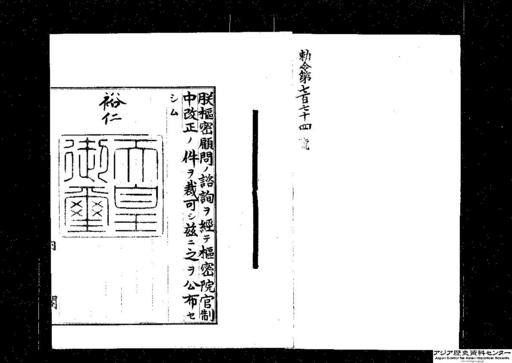 勅令第七百七十四號
朕樞密顧問ノ諮詢ヲ經テ樞密院官制
中改正ノ件ヲ裁可シ茲ニ之ヲ公布セ
シム
裕仁
天皇
御璽
内閣
アジア歴史資料センター
Japan Center for Asian Historical Records